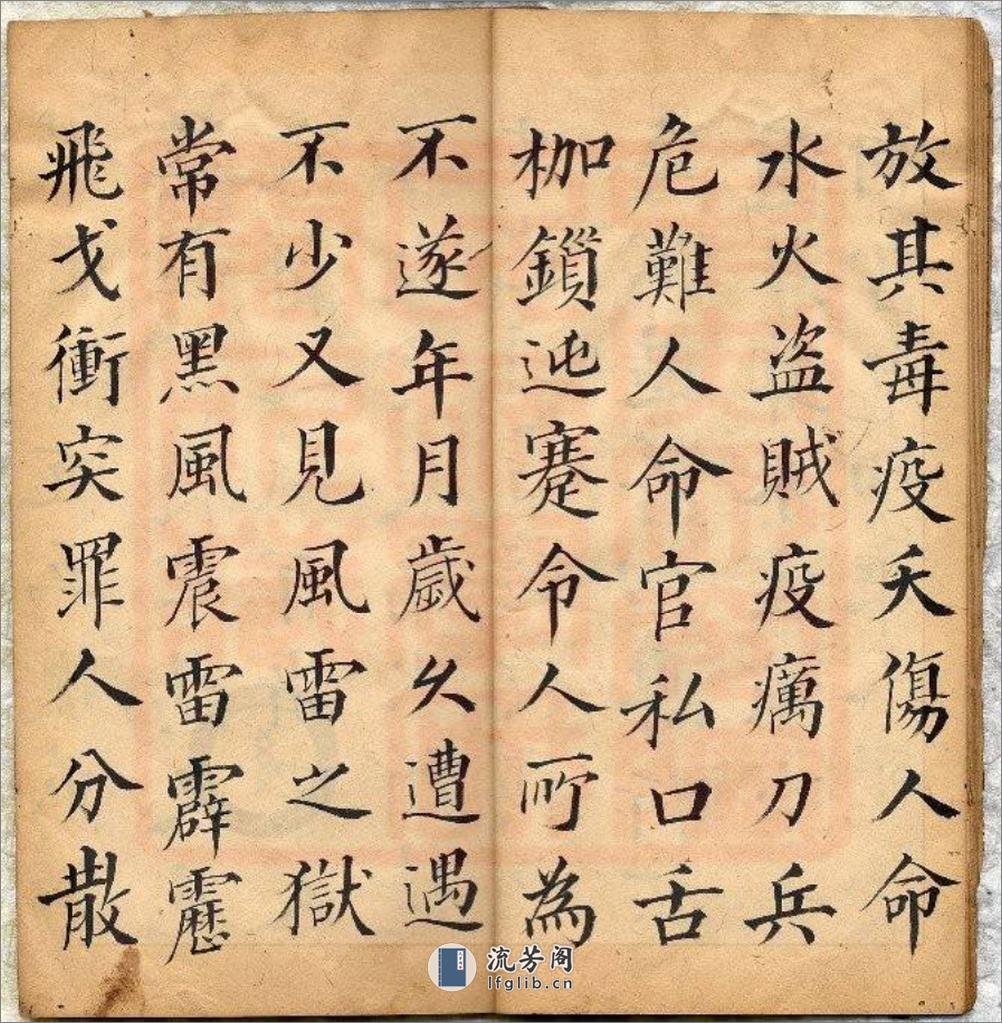 放其毒疫夭傷人命
水火盗賊疫癘刀兵
危難人命官私口舌
枷鎖迍蹇令人所為
不遂年月歲久遭遇
不少又見風雷之獄
常有黑風震雷霹靂
飛戈衝突罪人分散
流芳阁
lfglib.cn